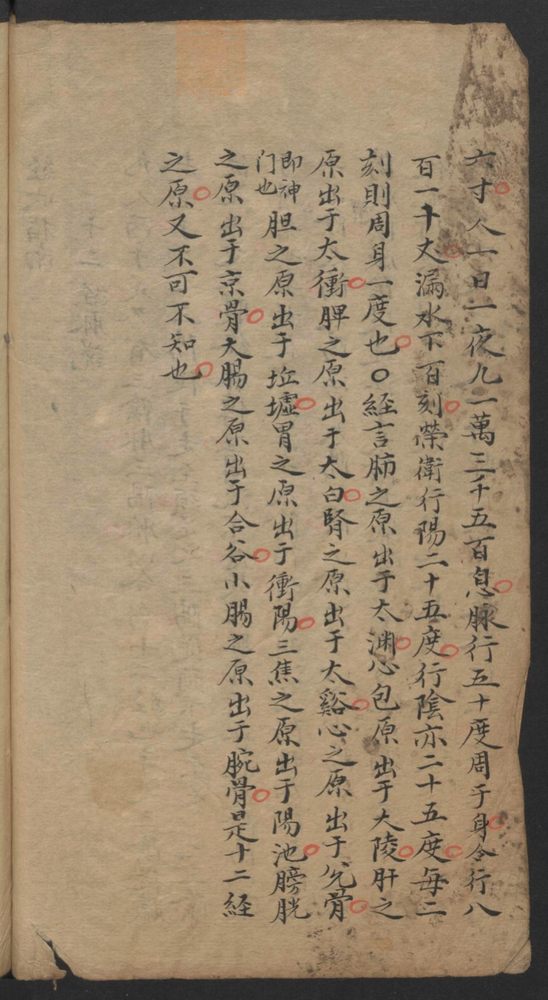 六寸人一日一夜九一萬三千五百息脉行五十度周于身合行八
百一十丈漏水下百刻榮衛行陽二十五度行陰亦二十五度每二
刻則周身一度也〇經言肺之原出于太渊心包原出于大陵肝之
原出于太衝脾之原出于太白腎之原出于太谿心之原出于兊骨
即神门也胆之原出于坵墟胃之原出于衝陽三焦之原出于陽池膀胱
之原出于京骨大腸之原出于合谷小腸之原出于腕骨是十二経
之原又不可不知也